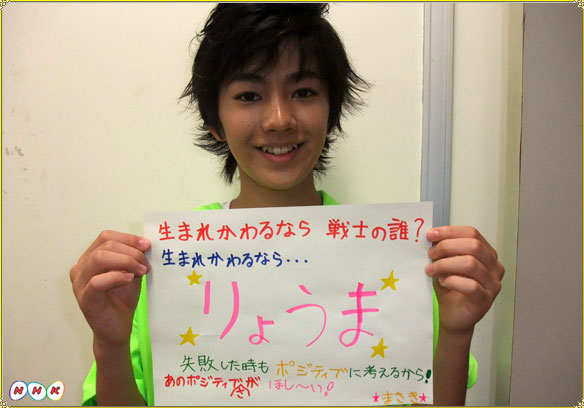 生まれかわるなら 戦士の誰?
生まれかわるなら・・・
りょうま
失敗した時も ポジティブに考えるから!
あのポジティブさが ほし〜い!
★まさき★
NHK